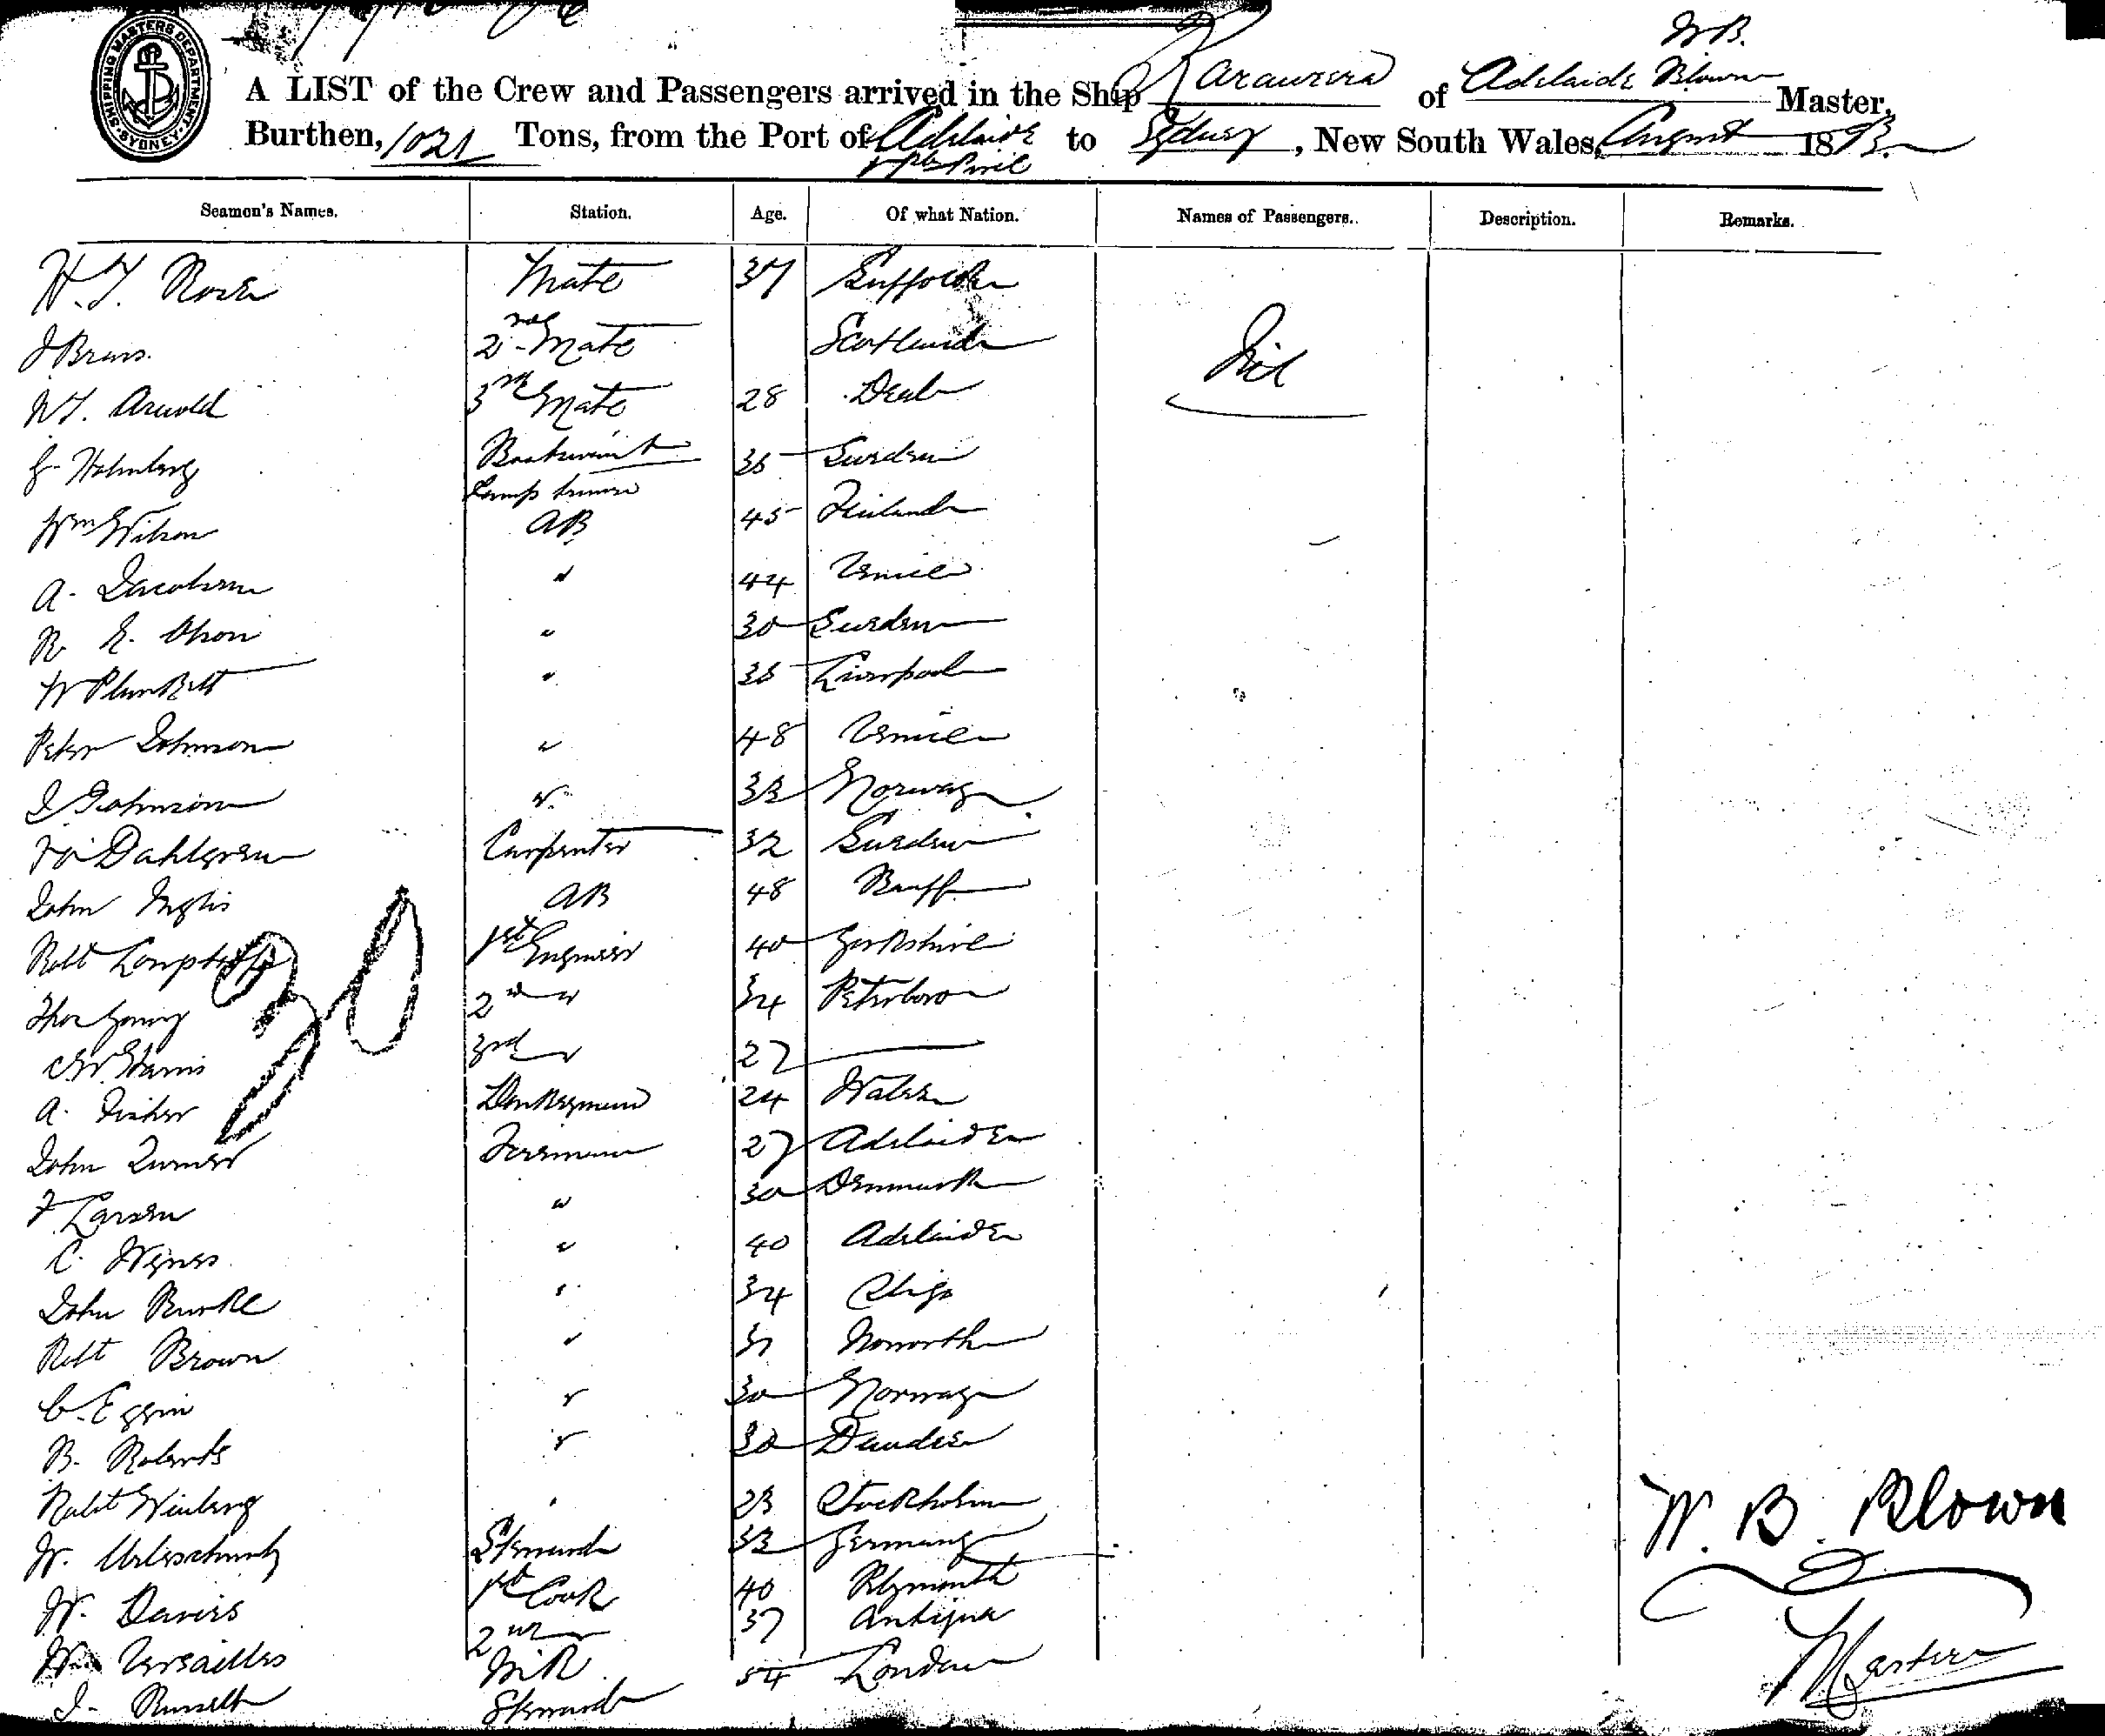 SHIPPING MASTERS DEPARTMENT. SYDNEY.
W B.
A LIST of the Crew and Passengers arrived in the Ship Karaweera of Adelaide Blown Master,
Burthen, 1021 Tons, from the Port of Adelaide to Sydney, New South Wales, August 1893.
Pt Pirie
Seamen's Names. Station. Age. Of what Nation. Names of Passengers. Description. Remarks.
H. J. Rose Mate 37 Suffolk
J Brans. 2nd Mate Scotland Nil
W J. Arnold 3rd Mate 28 Deal
Holmberg Boatswain & 35 Sweden
Lamp trimmer
Wm Wilson AB 45 Finland
A. Jacobsen " 44 Venice
R. E. Olson " 30 Sweden
W Plunkett " 38 Liverpool
Peter Johnson " 48 Venice
J Johnson " 33 Norway
Dahlgren Carpenter 32 Sweden
John Inglis AB 48 Banff
Robt 1st Engineer 40 Yorkshire
Thos Young 2nd " 34 Peterboro
C W Harris 3rd " 27
A. Fisher Donkeyman 24 Wales
John Turner Fireman 27 Adelaide
F Larsen " 30 Denmark
C. " 40 Adelaide
John Burke " 34 Sligo
Robt Brown " 31
C. Eggin " 30 Norway
B. Roberts " 30 Dundee
Robt Winberg " 23 Stockholm
W. Steward 33 Germany
W. Davies 1st Cook 40 Plymouth
W. Versailles 2nd " 37 Antigua
J. Russell Steward 54 London
30
W. B. Blown
Master